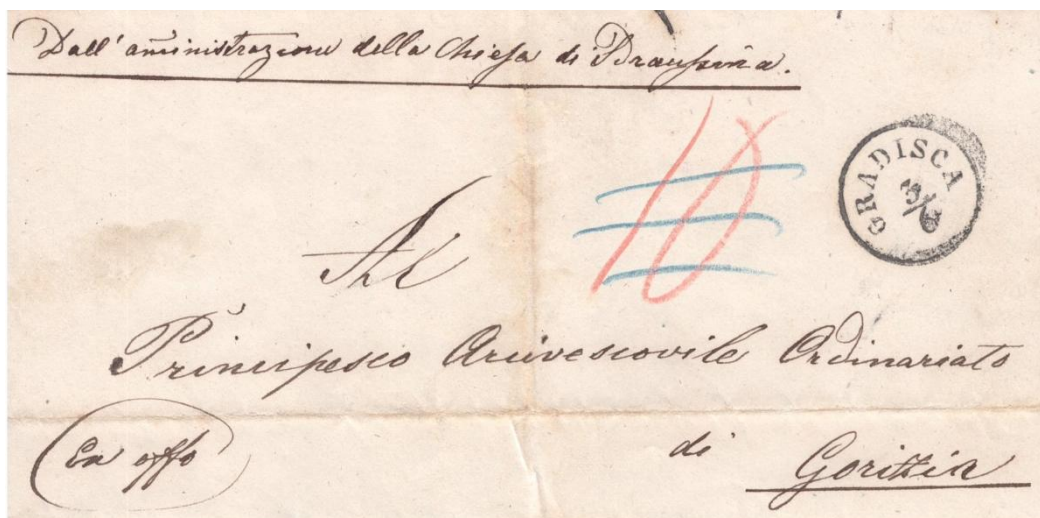 Dall' am̄inistrazione della Chiesa di Brauhina.
10
GRADISCA
Al
Principesco Arcivescovile Ordinariato
Ex offo
di Gorizia